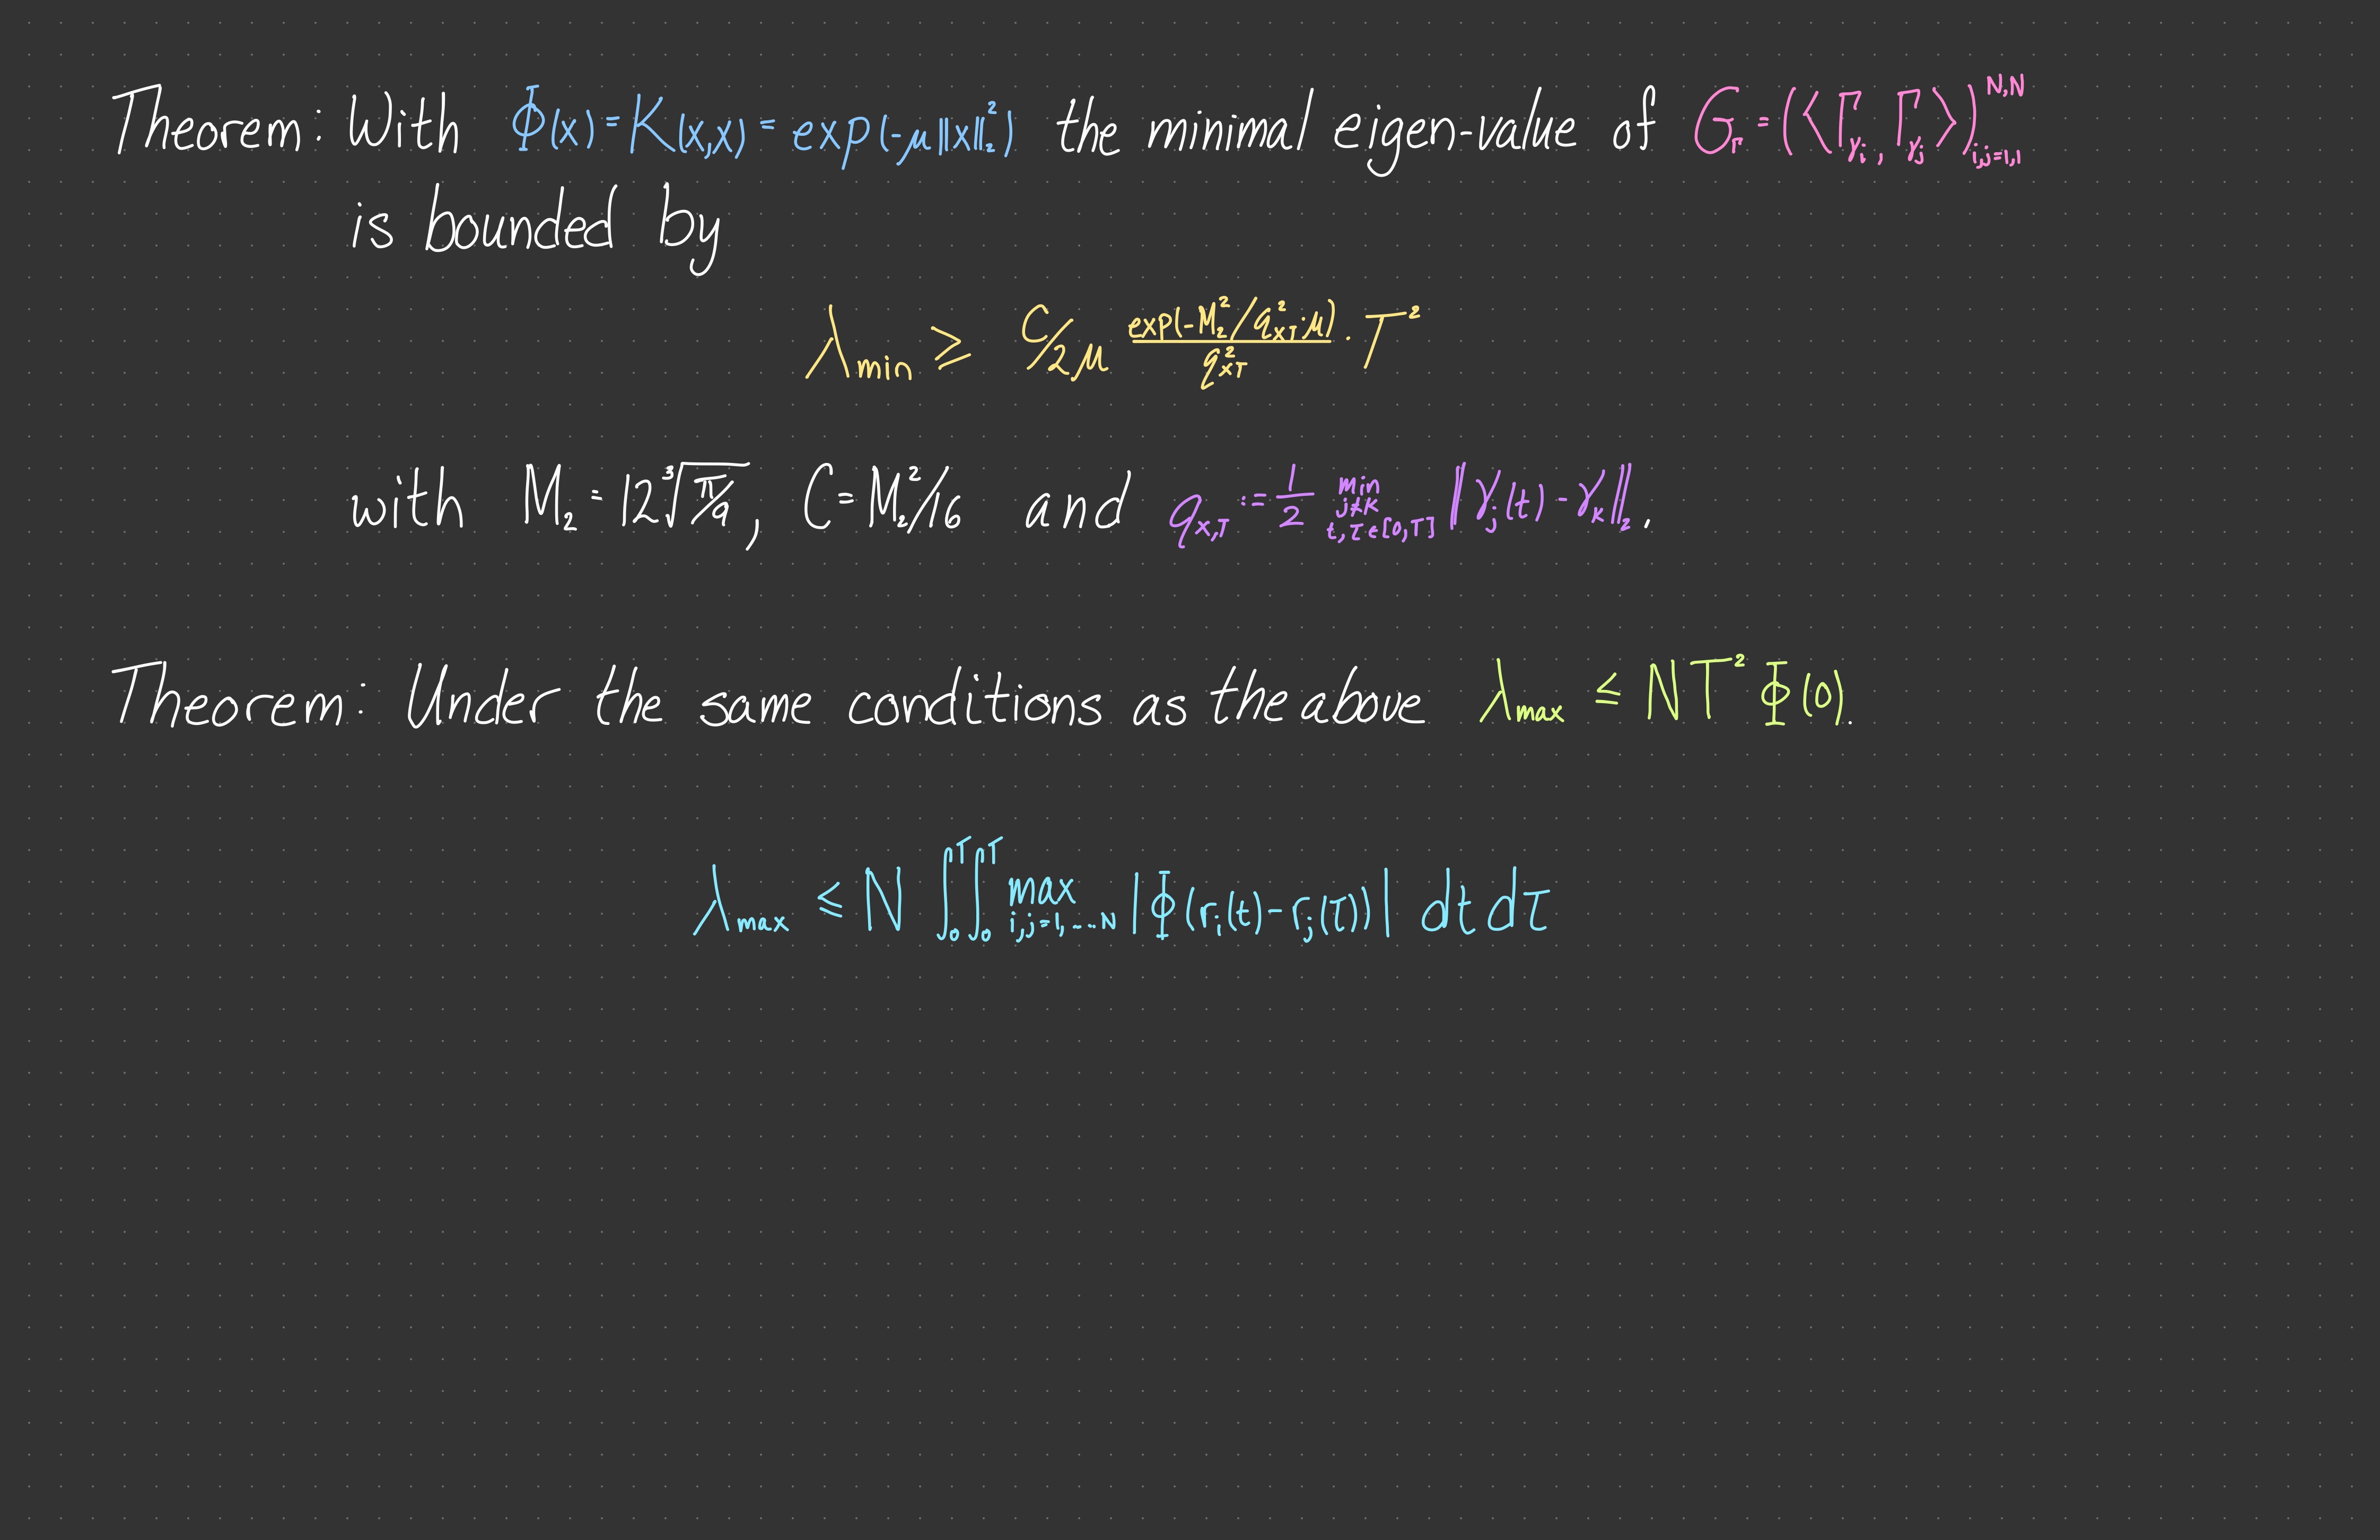 Theorem: With Φ(x) = K(x,x) = exp(-μ‖x‖₂²) the minimal eigen-value of G_Γ = (⟨Γ_γᵢ, Γ_γⱼ⟩)_{i,j=1,1}^{N,N}
is bounded by
λ_min ≥ C/2μ exp(-M₂²/q²_{xT}·μ)/q²_{xT} · T²
with M₂ = 12 ∛(π/9), C = M₂²/16 and q_{x,T} := 1/2 min_{j≠k t,τ∈[0,T]} ‖γⱼ(t) - γₖ‖₂.
Theorem: Under the same conditions as the above λ_max ≤ NT²Φ(0).
λ_max ≤ N ∫₀ᵀ∫₀ᵀ max_{i,j=1,...N} |Φ(rᵢ(t) - rⱼ(τ))| dt dτ